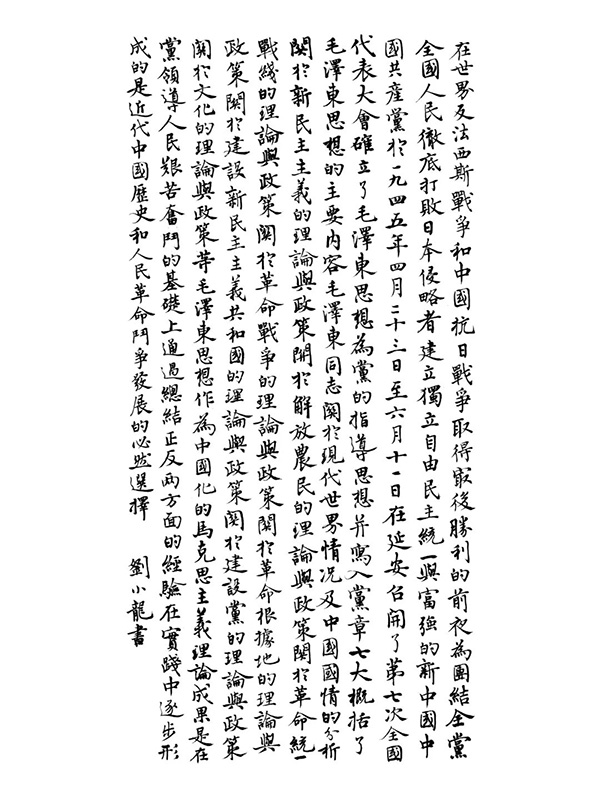 在世界反法西斯戰爭和中國抗日戰爭取得最後勝利的前夜為團結全黨
全國人民徹底打敗日本侵略者建立獨立自由民主統一與富強的新中國中
國共產黨於一九四五年四月二十三日至六月十一日在延安召開了第七次全國
代表大會確立了毛澤東思想為黨的指導思想并寫入黨章七大概括了
毛澤東思想的主要内容毛澤東同志関於現代世界情况及中國國情的分析
関於新民主主義的理論與政策関於解放農民的理論與政策関於革命統一
戰綫的理論與政策関於革命戰爭的理論與政策関於革命根據地的理論與
政策関於建設新民主主義共和國的理論與政策関於建設黨的理論與政策
関於文化的理論與政策等毛澤東思想作為中國化的馬克思主義理論成果是在
黨領導人民艱苦奮鬥的基礎上通過總結正反兩方面的經驗在實踐中逐步形
成的是近代中國歷史和人民革命鬥爭發展的必然選擇 劉小龍書